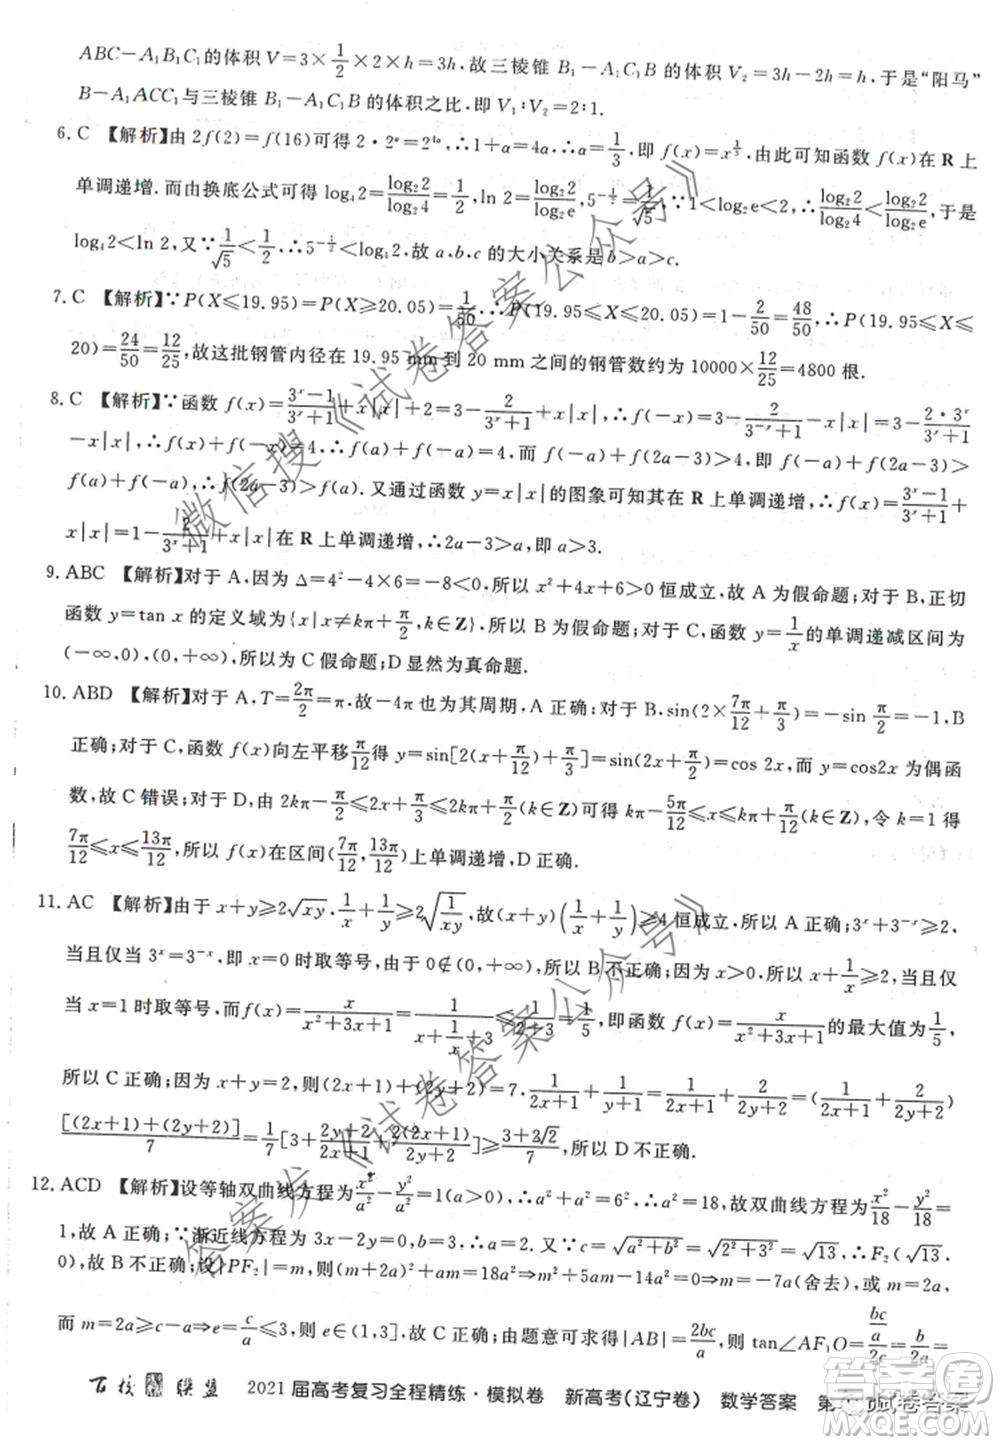 ABC－A₁B₁C₁的体积 V=3×1/2×2×2×h=3h.故三棱锥 B₁－A₁C₁B 的体积 V₂=3h－2h=h,于是“阳马”
B－A₁ACC₁与三棱锥 B₁－A₁C₁B 的体积之比,即 V₁∶V₂=2∶1.
6. C 【解析】由 2f(2)=f(16)可得 2·2ᵅ=2⁴ᵅ,∴1+α=4α.∴α=1/3,即 f(x)=x^(1/3).由此可知函数 f(x)在 R 上
单调递增.而由换底公式可得 log₄2=log₂2/log₂4,ln 2=log₂2/log₂e,5^(-1/2)=1/√5,∵1<log₂e<2,∴log₂2/log₂4<log₂2/log₂e,于是
log₄2<ln 2,又∵1/√5<1/2,∴5^(-1/2)<log₄2,故 a、b、c 的大小关系是 b>a>c.
7. C 【解析】∵P(X≤19.95)=P(X≥20.05)=1/50,∴P(19.95≤X≤20.05)=1－2/50=48/50,∴P(19.95≤X≤
20)=24/50=12/25,故这批钢管内径在 19.95 mm 到 20 mm 之间的钢管数约为 10000×12/25=4800 根.
8. C 【解析】∵函数 f(x)=(3ˣ－1)/(3ˣ+1)+x|x|+2=3－2/(3ˣ+1)+x|x|,∴f(－x)=3－2/(3⁻ˣ+1)－x|x|=3－2·3ˣ/(3ˣ+1)
－x|x|,∴f(x)+f(－x)=4,∴f(a)+f(－a)=4,∵f(－a)+f(2a－3)>4,即 f(－a)+f(2a－3)>f(a)+
f(－a),∴f(2a－3)>f(a).又通过函数 y=x|x|的图象可知其在 R 上单调递增,∴f(x)=(3ˣ－1)/(3ˣ+1)+
x|x|=1－2/(3ˣ+1)+x|x|在 R 上单调递增,∴2a－3>a,即 a>3.
9. ABC 【解析】对于 A,因为 Δ=4²－4×6=－8<0,所以 x²+4x+6>0 恒成立,故 A 为假命题,B,正切
函数 y=tan x 的定义域为{x|x≠kπ+π/2,k∈Z}.所以 B 为假命题;对于 C,函数 y=1/x的单调递减区间为
(－∞,0),(0,+∞),所以为 C 假命题;D 显然为真命题.
10. ABD 【解析】对于 A,T=2π/2=π.故－4π也为其周期,A 正确;对于 B.sin(2×7π/12+π/3)=－sin π/2=－1,B
正确;对于 C,函数 f(x)向左平移π/12得 y=sin[2(x+π/12)+π/3]=sin(2x+π/2)=cos 2x,而 y=cos2x 为偶函
数,故 C 错误;对于 D,由 2kπ－π/2≤2x+π/3≤2kπ+π/2(k∈Z)可得 kπ－5π/12≤x≤kπ+π/12(k∈Z),令 k=1 得
7π/12≤x≤13π/12,所以 f(x)在区间(7π/12,13π/12)上单调递增,D 正确.
11. AC 【解析】由于 x+y≥2√xy,1/x+1/y≥2√(1/xy),故(x+y)(1/x+1/y)≥4恒成立,所以 A 正确;3ˣ+3⁻ˣ≥2,
当且仅当 3ˣ=3⁻ˣ,即 x=0 时取等号,由于 0∉(0,+∞),所以 B 不正确;因为 x>0,所以 x+1/x≥2,当且仅
当 x=1 时取等号,而 f(x)=x/(x²+3x+1)=1/(x+1/x+3)≤1/(2+3)=1/5,即函数 f(x)=x/(x²+3x+1)的最大值为1/5,
所以 C 正确;因为 x+y=2,则(2x+1)+(2y+2)=7.1/(2x+1)+1/(y+1)=1/(2x+1)+2/(2y+2)=(1/(2x+1)+2/(2y+2))
[(2x+1)+(2y+2)]/7=1/7[3+(2y+2)/(2x+1)+2(2x+1)/(2y+2)]≥(3+2√2)/7,所以 D 不正确.
12. ACD 【解析】设等轴双曲线方程为x²/a²－y²/a²=1(a>0),∴a²+a²=6²,∴a²=18,故双曲线方程为x²/18－y²/18=
1,故 A 正确;∵渐近线方程为
0),故 B 不正确;设|PF₂|=m,则(m+2a)²+am=18a²⇒m²+5am－14a²=0⇒m=－7a(舍去),或 m=2a,
而 m=2a≥c－a⇒e=c/a≤3,则 e∈(1,3],C 正确;由题意可求得|AB|=2bc/a,则 tan∠AF₁O=(bc/a)/2c=b/2a=
百校联盟 2021 届高考复习全程精练·模拟卷 新高考(辽宁卷) 数学答案 第
微信搜《试卷答案公众号》
答案发《试卷答案公众号》
答案圈